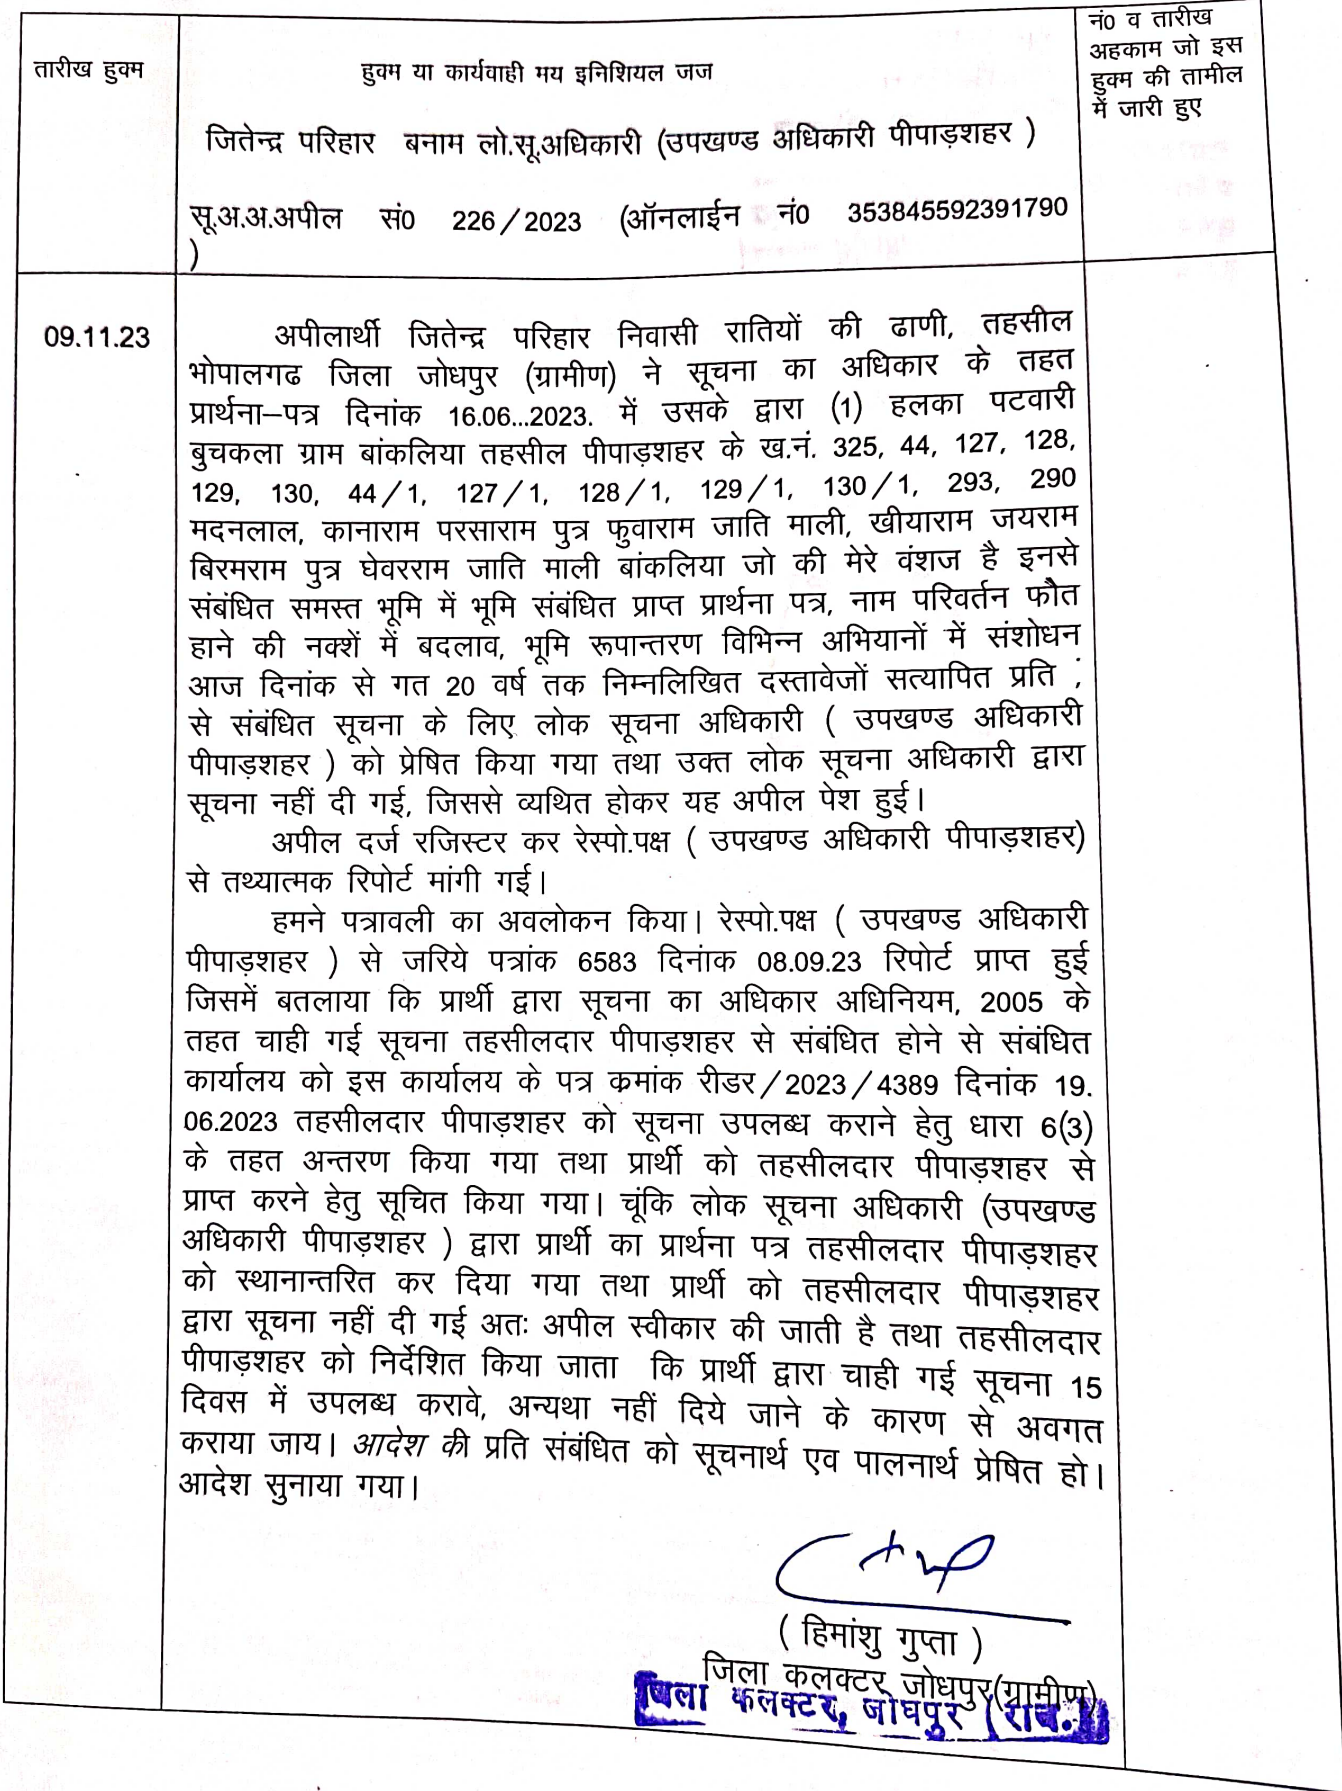 तारीख हुक्म
हुक्म या कार्यवाही मय इनिशियल जज
नं0 व तारीख
अहकाम जो इस
हुक्म की तामील
में जारी हुए
जितेन्द्र परिहार बनाम लो.सू.अधिकारी (उपखण्ड अधिकारी पीपाड़शहर )
सू.अ.अ.अपील सं0 226/2023 (ऑनलाईन नं0 353845592391790
)
09.11.23
अपीलार्थी जितेन्द्र परिहार निवासी रातियों की ढाणी, तहसील
भोपालगढ जिला जोधपुर (ग्रामीण) ने सूचना का अधिकार के तहत
प्रार्थना–पत्र दिनांक 16.06...2023. में उसके द्वारा (1) हलका पटवारी
बुचकला ग्राम बांकलिया तहसील पीपाड़शहर के ख.नं. 325, 44, 127, 128,
129, 130, 44/1, 127/1, 128/1, 129/1, 130/1, 293, 290
मदनलाल, कानाराम परसाराम पुत्र फुवाराम जाति माली, खीयाराम जयराम
बिरमराम पुत्र घेवरराम जाति माली बांकलिया जो की मेरे वंशज है इनसे
संबंधित समस्त भूमि में भूमि संबंधित प्राप्त प्रार्थना पत्र, नाम परिवर्तन फौत
हाने की नक्शें में बदलाव, भूमि रूपान्तरण विभिन्न अभियानों में संशोधन
आज दिनांक से गत 20 वर्ष तक निम्नलिखित दस्तावेजों सत्यापित प्रति ;
से संबंधित सूचना के लिए लोक सूचना अधिकारी ( उपखण्ड अधिकारी
पीपाड़शहर ) को प्रेषित किया गया तथा उक्त लोक सूचना अधिकारी द्वारा
सूचना नहीं दी गई, जिससे व्यथित होकर यह अपील पेश हुई।
अपील दर्ज रजिस्टर कर रेस्पो.पक्ष ( उपखण्ड अधिकारी पीपाड़शहर)
से तथ्यात्मक रिपोर्ट मांगी गई।
हमने पत्रावली का अवलोकन किया। रेस्पो.पक्ष ( उपखण्ड अधिकारी
पीपाड़शहर ) से जरिये पत्रांक 6583 दिनांक 08.09.23 रिपोर्ट प्राप्त हुई
जिसमें बतलाया कि प्रार्थी द्वारा सूचना का अधिकार अधिनियम, 2005 के
तहत चाही गई सूचना तहसीलदार पीपाड़शहर से संबंधित होने से संबंधित
कार्यालय को इस कार्यालय के पत्र क्रमांक रीडर/2023/4389 दिनांक 19.
06.2023 तहसीलदार पीपाड़शहर को सूचना उपलब्ध कराने हेतु धारा 6(3)
के तहत अन्तरण किया गया तथा प्रार्थी को तहसीलदार पीपाड़शहर से
प्राप्त करने हेतु सूचित किया गया। चूंकि लोक सूचना अधिकारी (उपखण्ड
अधिकारी पीपाड़शहर ) द्वारा प्रार्थी का प्रार्थना पत्र तहसीलदार पीपाड़शहर
को स्थानान्तरित कर दिया गया तथा प्रार्थी को तहसीलदार पीपाड़शहर
द्वारा सूचना नहीं दी गई अतः अपील स्वीकार की जाती है तथा तहसीलदार
पीपाड़शहर को निर्देशित किया जाता कि प्रार्थी द्वारा चाही गई सूचना 15
दिवस में उपलब्ध करावे, अन्यथा नहीं दिये जाने के कारण से अवगत
कराया जाय। आदेश की प्रति संबंधित को सूचनार्थ एव पालनार्थ प्रेषित हो।
आदेश सुनाया गया।
( हिमांशु गुप्ता )
जिला कलक्टर जोधपुर(ग्रामीण)
जिला कलक्टर, जोधपुर (राज.)